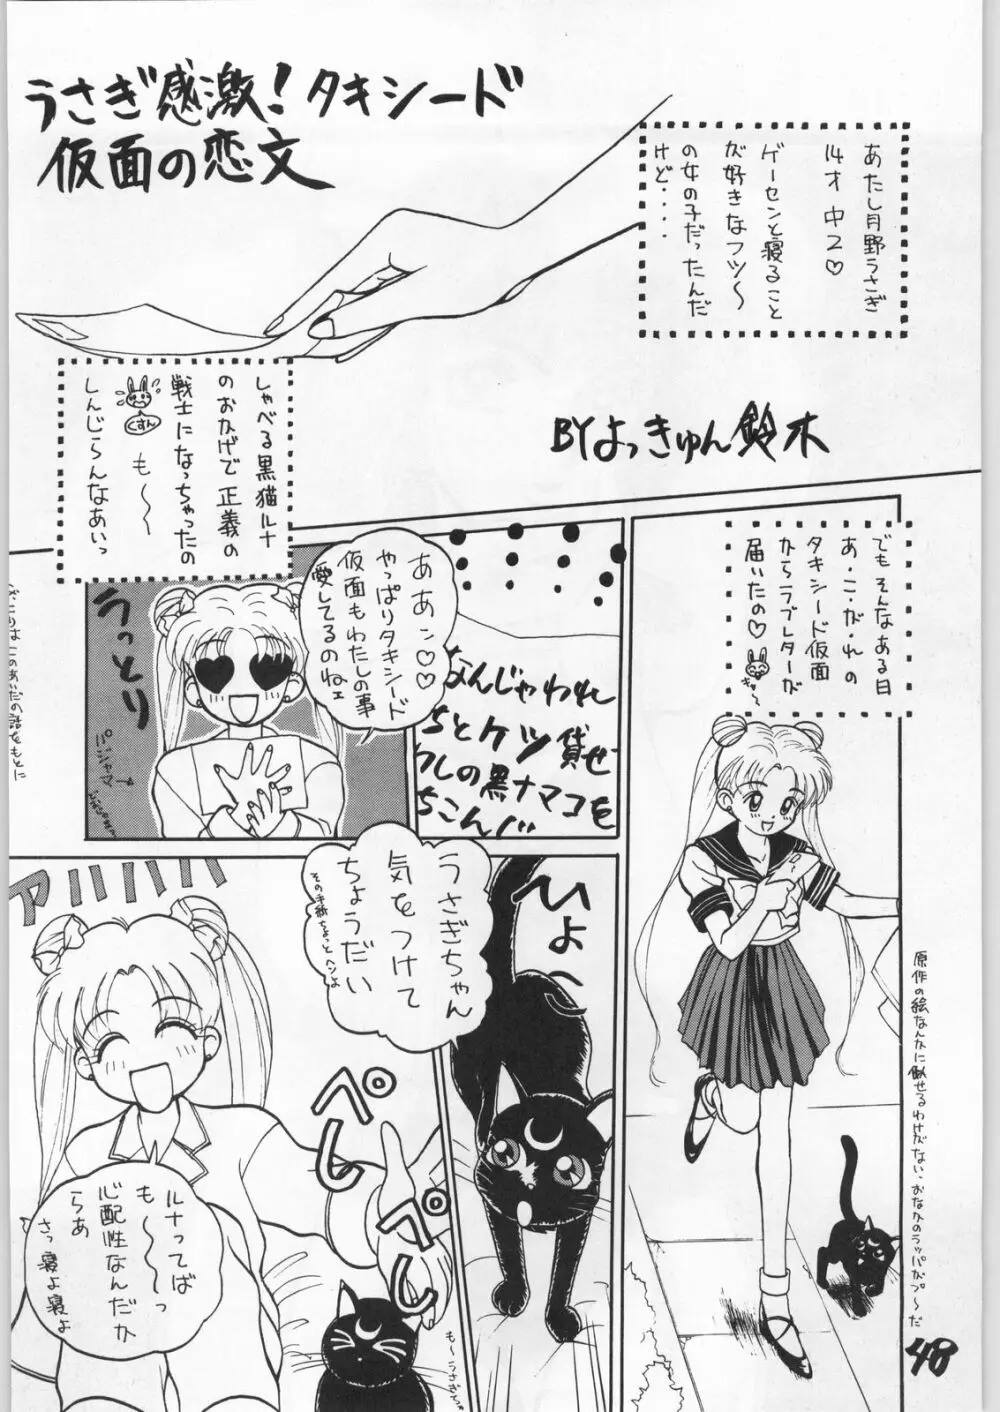 うさぎ感激！タキシード
仮面の恋文
あたし月野うさぎ
14才 中2♡
ゲーセンと寝ること
が好きなフツ〜
の女の子だったんだ
けど・・・・
BYよっきゅん鈴木
しゃべる黒猫ルナ
のおかげで正義の
戦士になっちゃったの
くすん
も〜〜
しんじらんなあいっ
でもそんなある日
あ・こ・が・れの
タキシード仮面
からラブレターが
届いたの♡
原作の絵なんかに似せるわけがない、おなかのラッパがプ〜だ
なんじゃわれ
ちとケツ貸せ
ワしの黒ナマコを
ああン♡♡
やっぱりタキシード
仮面もわたしの事
愛してるのねェ
うっとり
パジャマ
ひょ〜
うさぎちゃん
気をつけて
ちょうだい
その手紙ちょっとヘンよ
アハハハ
ペしペし
ルナってば
も〜〜っ
心配性なんだか
らぁ
さっ寝よ寝よ
も〜うさぎちゃ
48